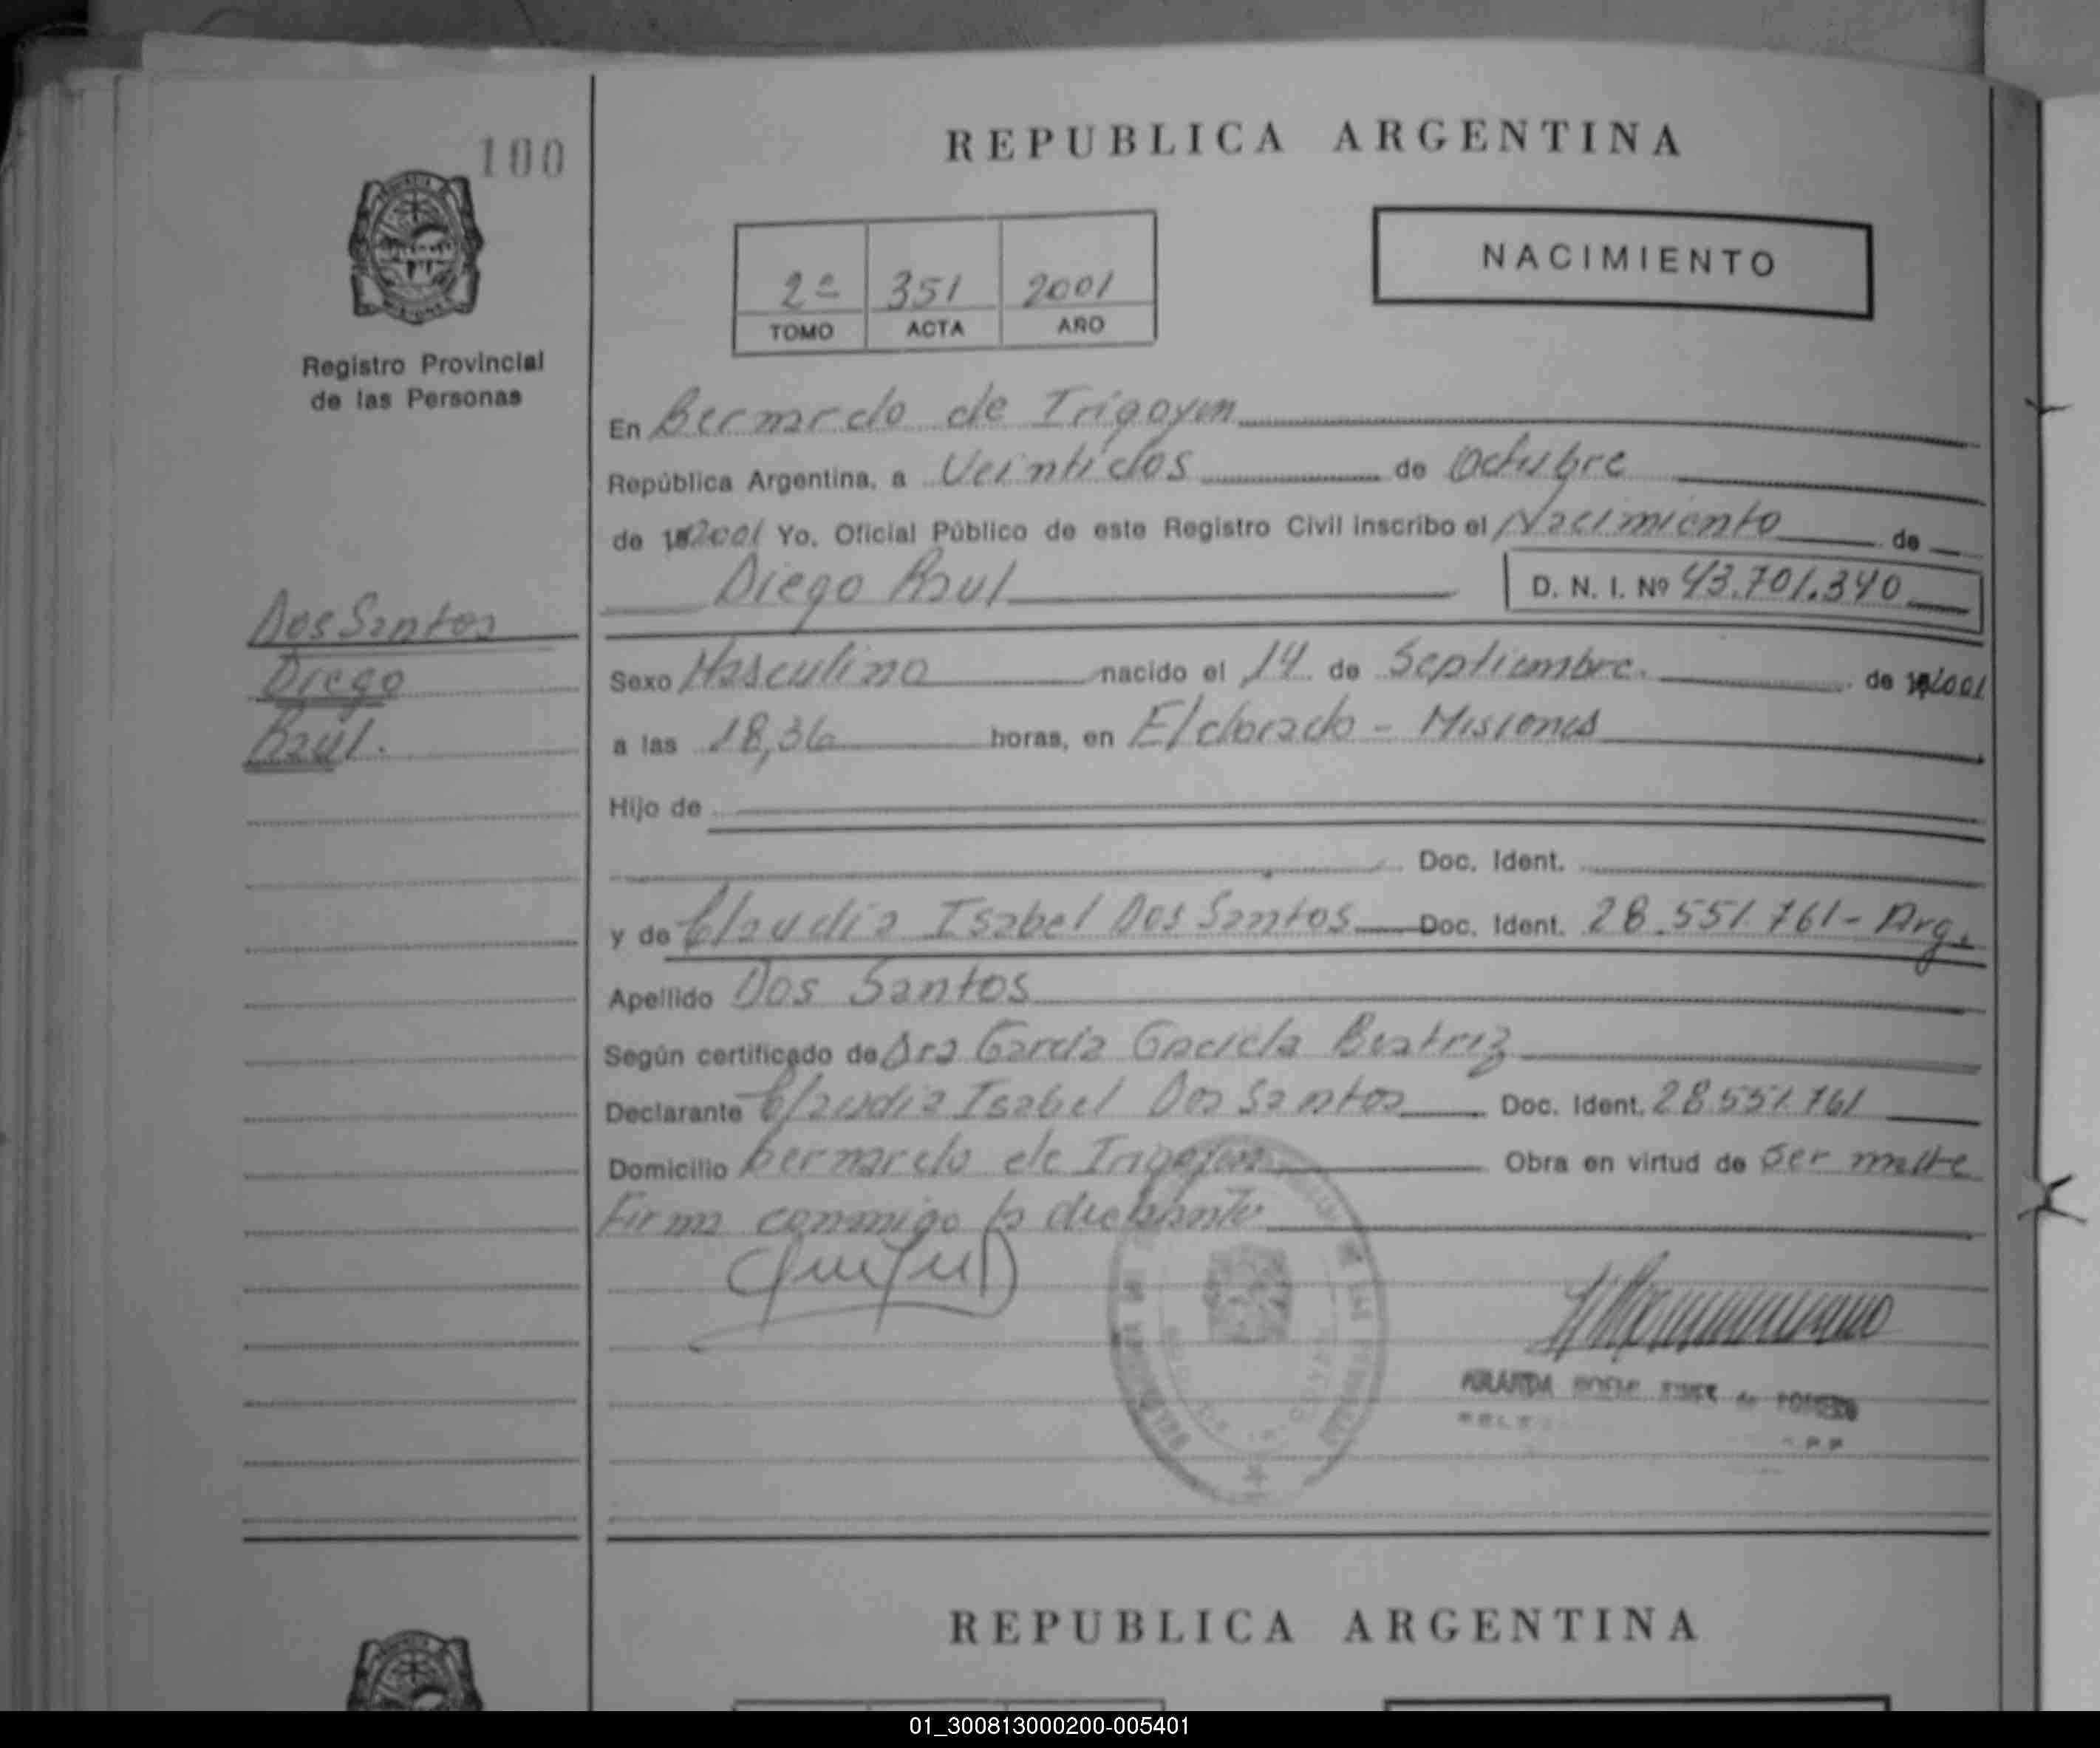 100
REPUBLICA ARGENTINA
NACIMIENTO
2º 351 2001
TOMO ACTA AÑO
Registro Provincial
de las Personas
En Bernardo de Irigoyen
República Argentina, a Veintidos de Octubre
de 2001 Yo, Oficial Público de este Registro Civil inscribo el Nacimiento de
Diego Raul D. N. I. Nº 43.701.340
Dos Santos
Diego
Raul.
Sexo Masculino nacido el 14 de Septiembre. de 2001
a las 18,36 horas, en Eldorado - Misiones
Hijo de
Doc. Ident.
y de Claudia Isabel Dos Santos Doc. Ident. 28.551.761- Arg.
Apellido Dos Santos
Según certificado de Dra Garcia Beatriz
Declarante Claudia Isabel Dos Santos Doc. Ident. 28.551.761
Domicilio Bernardo de Irigoyen Obra en virtud de Ser
Firma conmigo la
REPUBLICA ARGENTINA
01_300813000200-005401